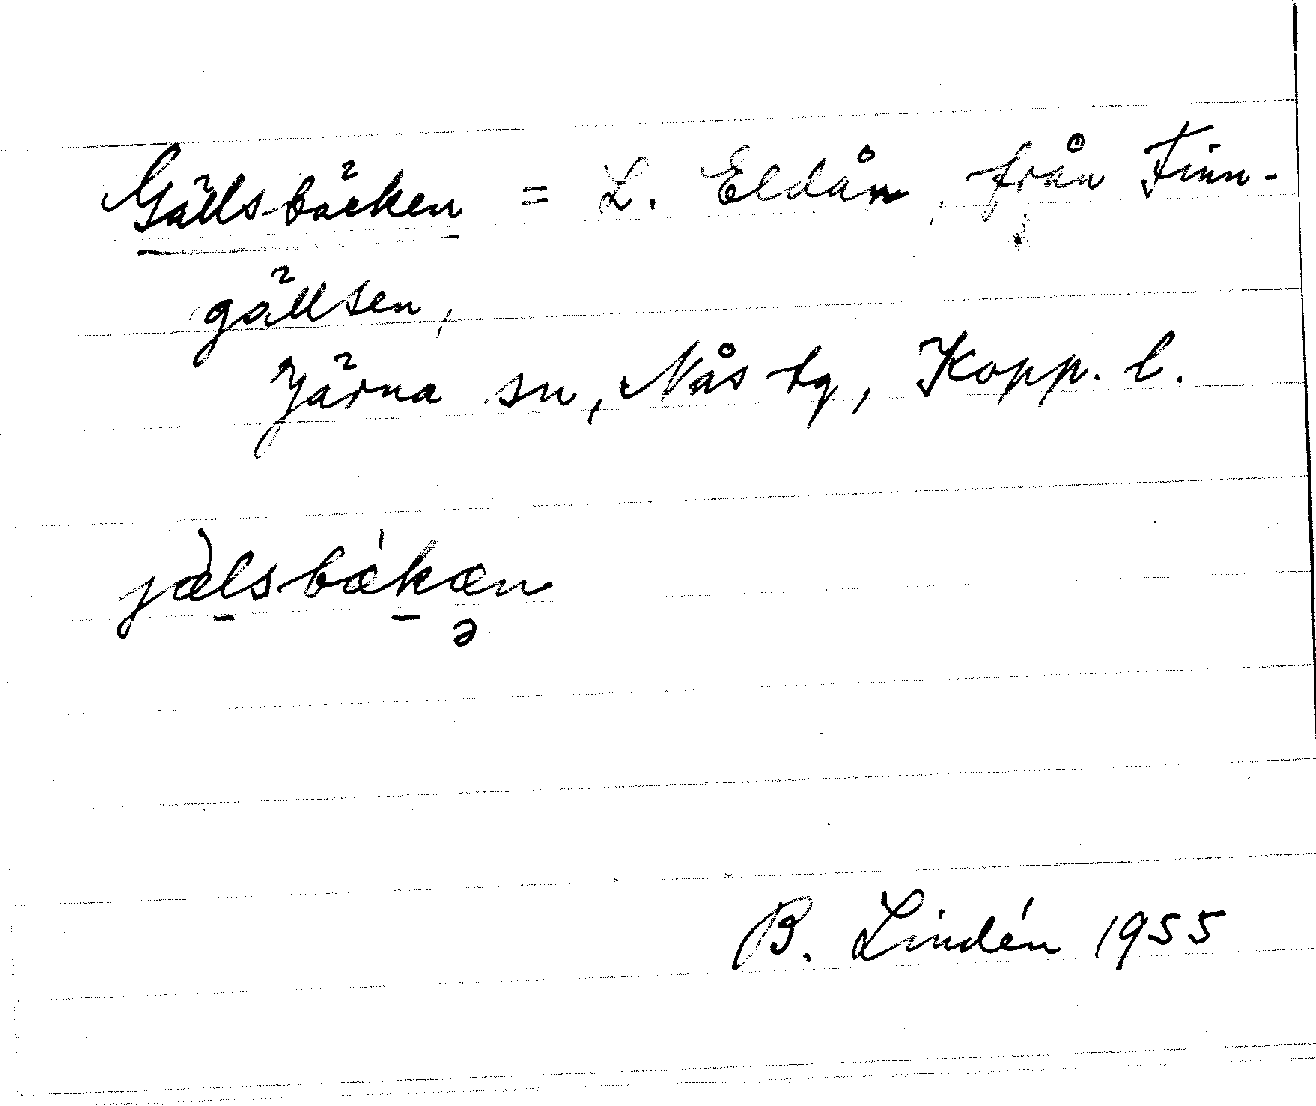 Gällsbäcken = L. Eldån, från Finn-
gällsen,
Järna sn, Nås tg, Kopp. l.
jæ̀lsbǽkæn
ə
B. Lindén 1955